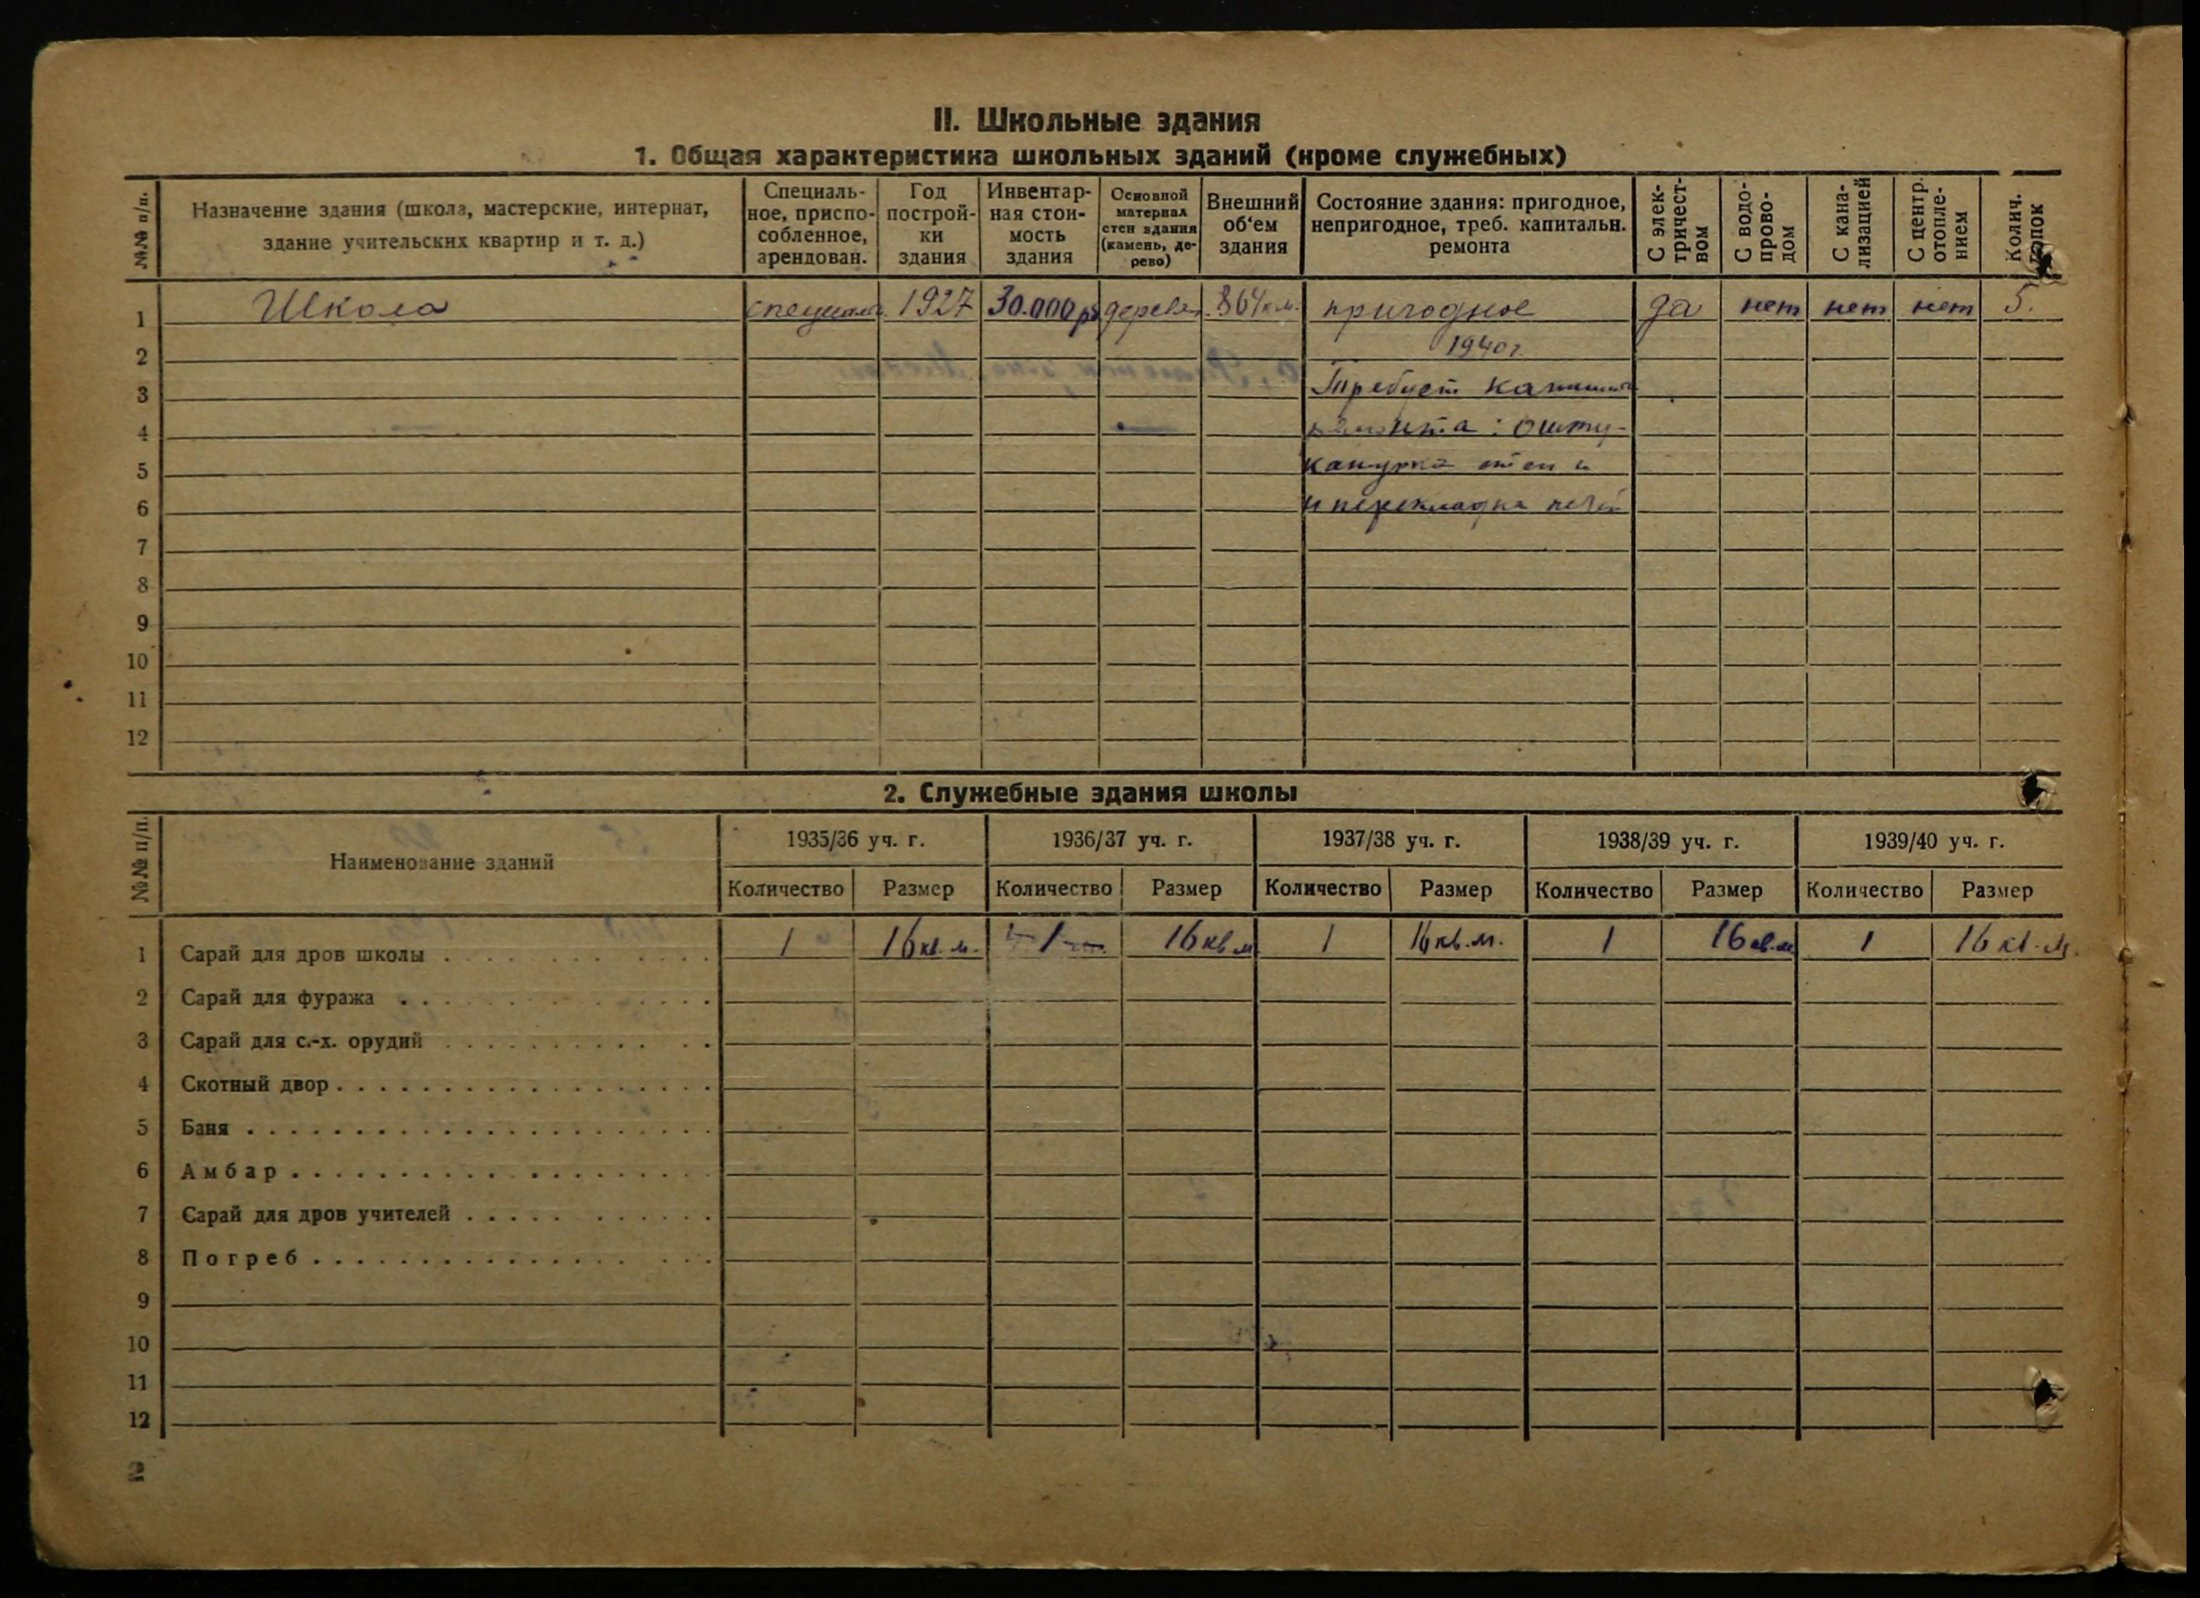 II. Школьные здания
1. Общая характеристика школьных зданий (кроме служебных)
№№ п/п.
Назначение здания (школа, мастерские, интернат,
здание учительских квартир и т. д.)
Специаль-
ное, приспо-
собленное,
арендован.
Год
построй-
ки
здания
Инвентар-
ная стои-
мость
здания
Основной
материал
стен здания
(камень, де-
рево)
Внешний
об‘ем
здания
Состояние здания: пригодное,
непригодное, треб. капитальн.
ремонта
С элек-
тричест-
вом
С водо-
прово-
дом
С кана-
лизацией
С центр.
отопле-
нием
Колич.
топок
1 Школа 1927 30.000 дерев. пригодное да нет нет нет 5.
2 1940 г.
3 Требует
4 ремонта: ошту-
5 катурка стен и
6 и перекладка печей
7
8
9
10
11
12
2. Служебные здания школы
№№ п/п.
Наименование зданий
1935/36 уч. г. 1936/37 уч. г. 1937/38 уч. г. 1938/39 уч. г. 1939/40 уч. г.
Количество Размер Количество Размер Количество Размер Количество Размер Количество Размер
1 Сарай для дров школы . . . . . . . . . . 1 16 кв. м. 1 16 кв м 1 16 кв. м. 1 16 кв. м 1 16 кв. м.
2 Сарай для фуража . . . . . . . . . . . .
3 Сарай для с.-х. орудий . . . . . . . . . .
4 Скотный двор . . . . . . . . . . . . . .
5 Баня . . . . . . . . . . . . . . . . . .
6 Амбар . . . . . . . . . . . . . . . .
7 Сарай для дров учителей . . . . . . . . .
8 Погреб . . . . . . . . . . . . . . . .
9
10
11
12
2